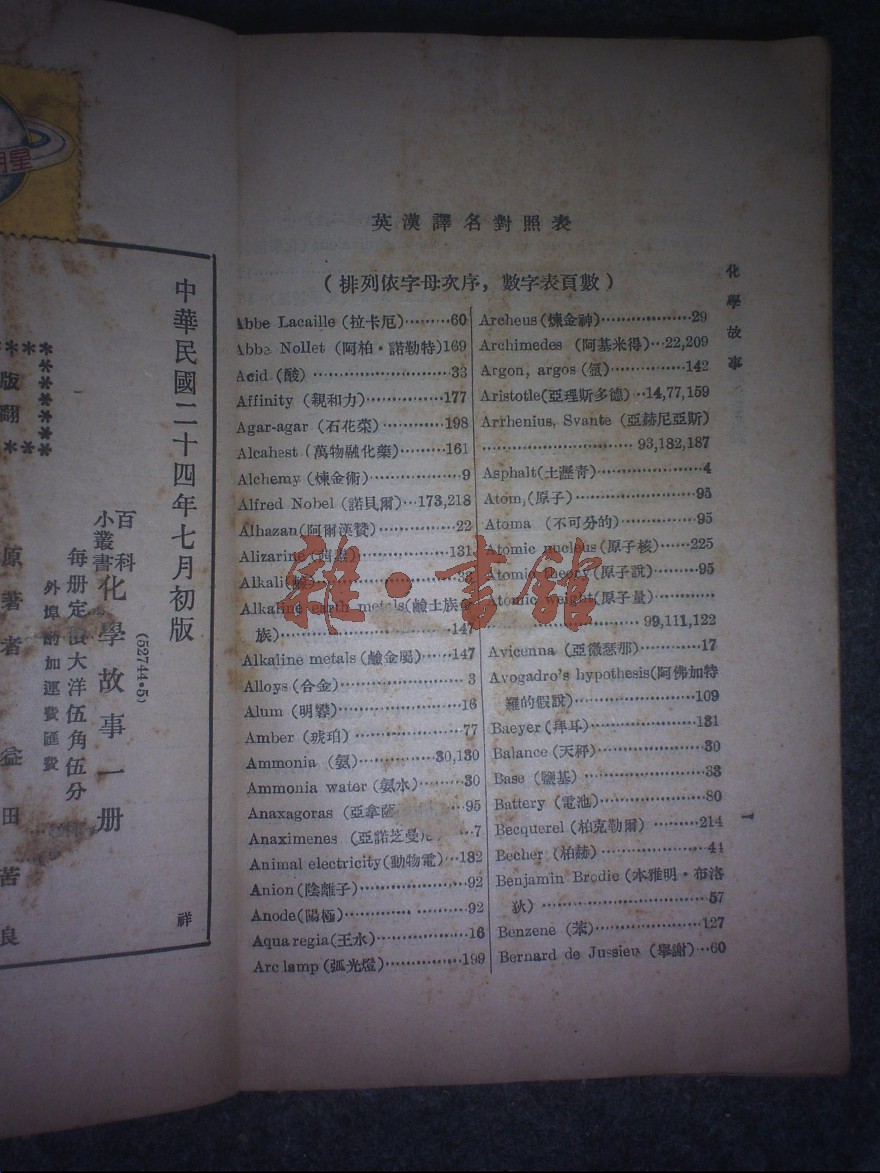 英漢譯名對照表
（排列依字母次序，數字表頁數）
Abbe Lacaille (拉卡厄)·········60
Abbe Nollet (阿柏·諾勒特)169
Acid (酸)·····················33
Affinity (親和力)···············177
Agar-agar (石花菜)············198
Alcahest (萬物融化藥)·········161
Alchemy (煉金術)················9
Alfred Nobel (諾貝爾)···173,218
Alhazan(阿爾漢贊)·············22
Alizarine ···············131
Alkali ···············33
Alkaline earth metals(鹼土族金
族)·························147
Alkaline metals (鹼金屬)······147
Alloys (合金)···················3
Alum (明礬)···················16
Amber (琥珀)·················77
Ammonia (氨)···········30,130
Ammonia water (氨水)·······30
Anaxagoras (亞拿薩 ·····95
Anaximenes (亞諾芝曼 ···7
Animal electricity(動物電)···182
Anion(陰離子)················92
Anode(陽極)··················92
Aqua regia(王水)··············16
Arc lamp (弧光燈)············199
Archeus(煉金神)················29
Archimedes (阿基米得)···22,209
Argon, argos (氬)············142
Aristotle(亞理斯多德)··14,77,159
Arrhenius, Svante (亞赫尼亞斯)
·······················93,182,187
Asphalt(土瀝青)·················4
Atom,(原子)···················95
Atoma (不可分的)·············95
Atomic nucleus(原子核)······225
Atomic theory(原子說)·········95
Atomic weight(原子量)·········
·······················99,111,122
Avicenna (亞微瑟那)···········17
Avogadro's hypothesis(阿佛加特
羅的假說)···················109
Baeyer (拜耳)················131
Balance (天秤)·················30
Base (鹽基)···················33
Battery (電池)·················80
Becquerel (柏克勒爾)·········214
Becher (柏赫)·················41
Benjamin Brodie (本雅明·布洛
狄)·························57
Benzene (苯)·················127
Bernard de Jussieu (舉謝)···60
化學故事
1
中華民國二十四年七月初版
(52744·5)
百科
小叢書
化學故事一册
每册定價大洋伍角伍分
外埠酌加運費匯費
原著者 益田苦良
版 翻
祥
明星
雜·書館